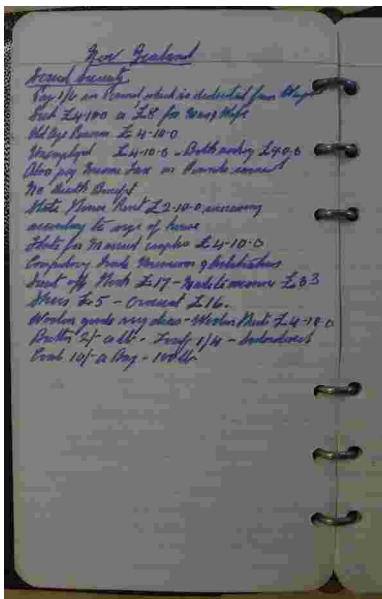 New Zealand
Social Security
Pay 1/6 in Pound which is deducted from Wages
Sick £4-10-0 or £8 for Man & Wife
Old Age Pension £4-10-0
Unemployed £4-10-0 - Both
Also pay Income Tax on Private
No Death Benefit
State House Rent £2-10-0 increasing
according to size of house
Flats for Married couples £4-10-0
Compulsory Trade Unionism & Arbitration
Suit off Hook £17 - Made to measure £33
Shoes £5 - Overcoat £16.
Woollen goods very dear - Woollen £4-10-0
Butter 2/- a lb - Loaf 1/4 -
Coal 10/- a Bag - 100lb